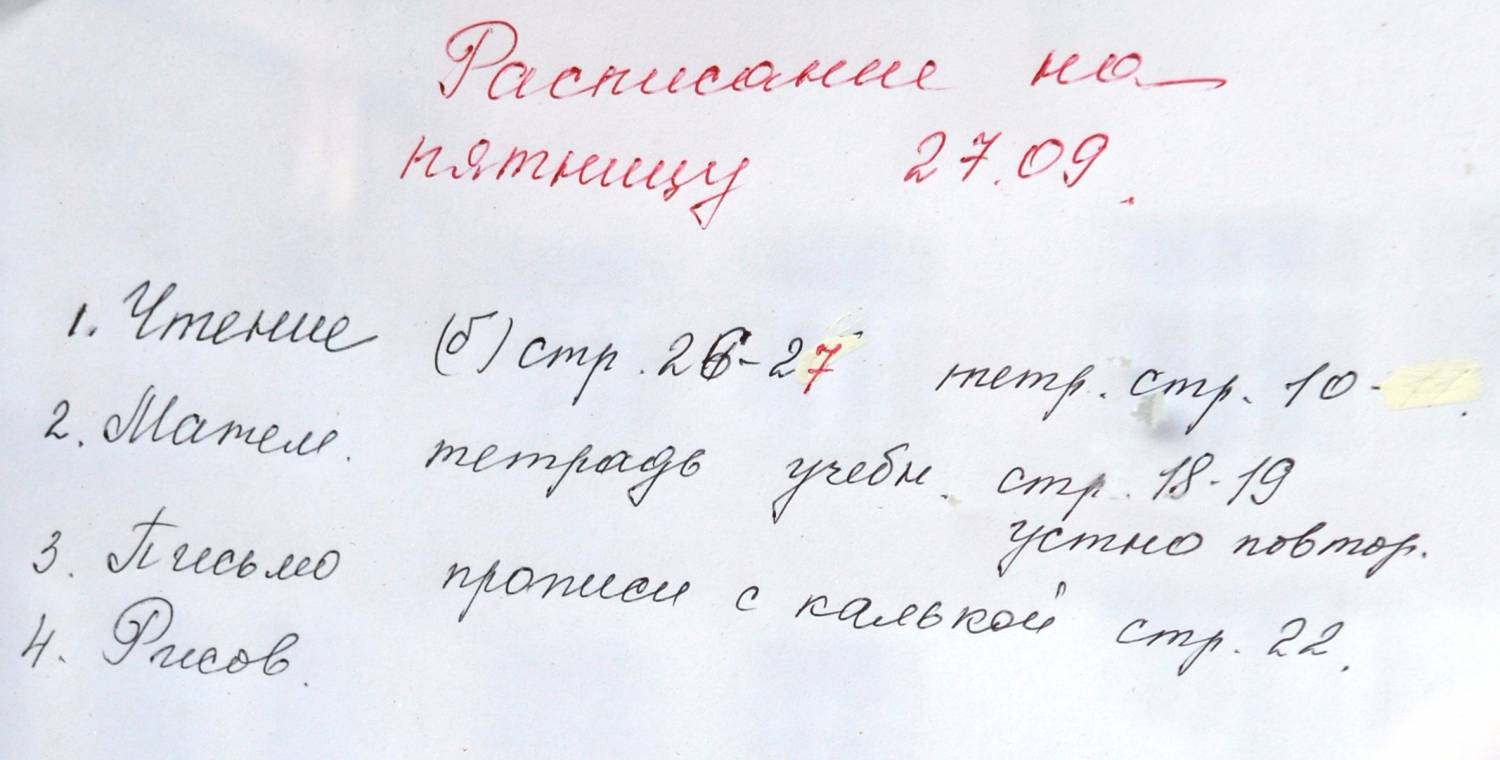 Расписание на
пятницу 27.09.
1. Чтение (б) стр. 26-27 тетр. стр. 10-
2. Матем. тетрадь учебн. стр. 18-19
устно повтор.
3. Письмо прописи с калькой стр. 22.
4. Рисов.